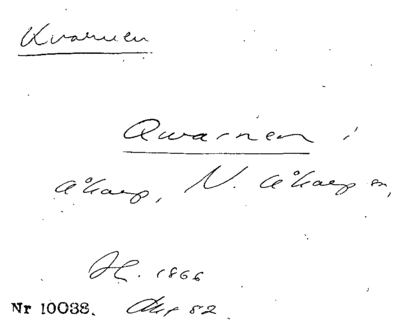 Kvarnen
Qwarnen i
Åkarp, N. Åkarp sn,
Hl. 1866
Nr 10038. Akt 82